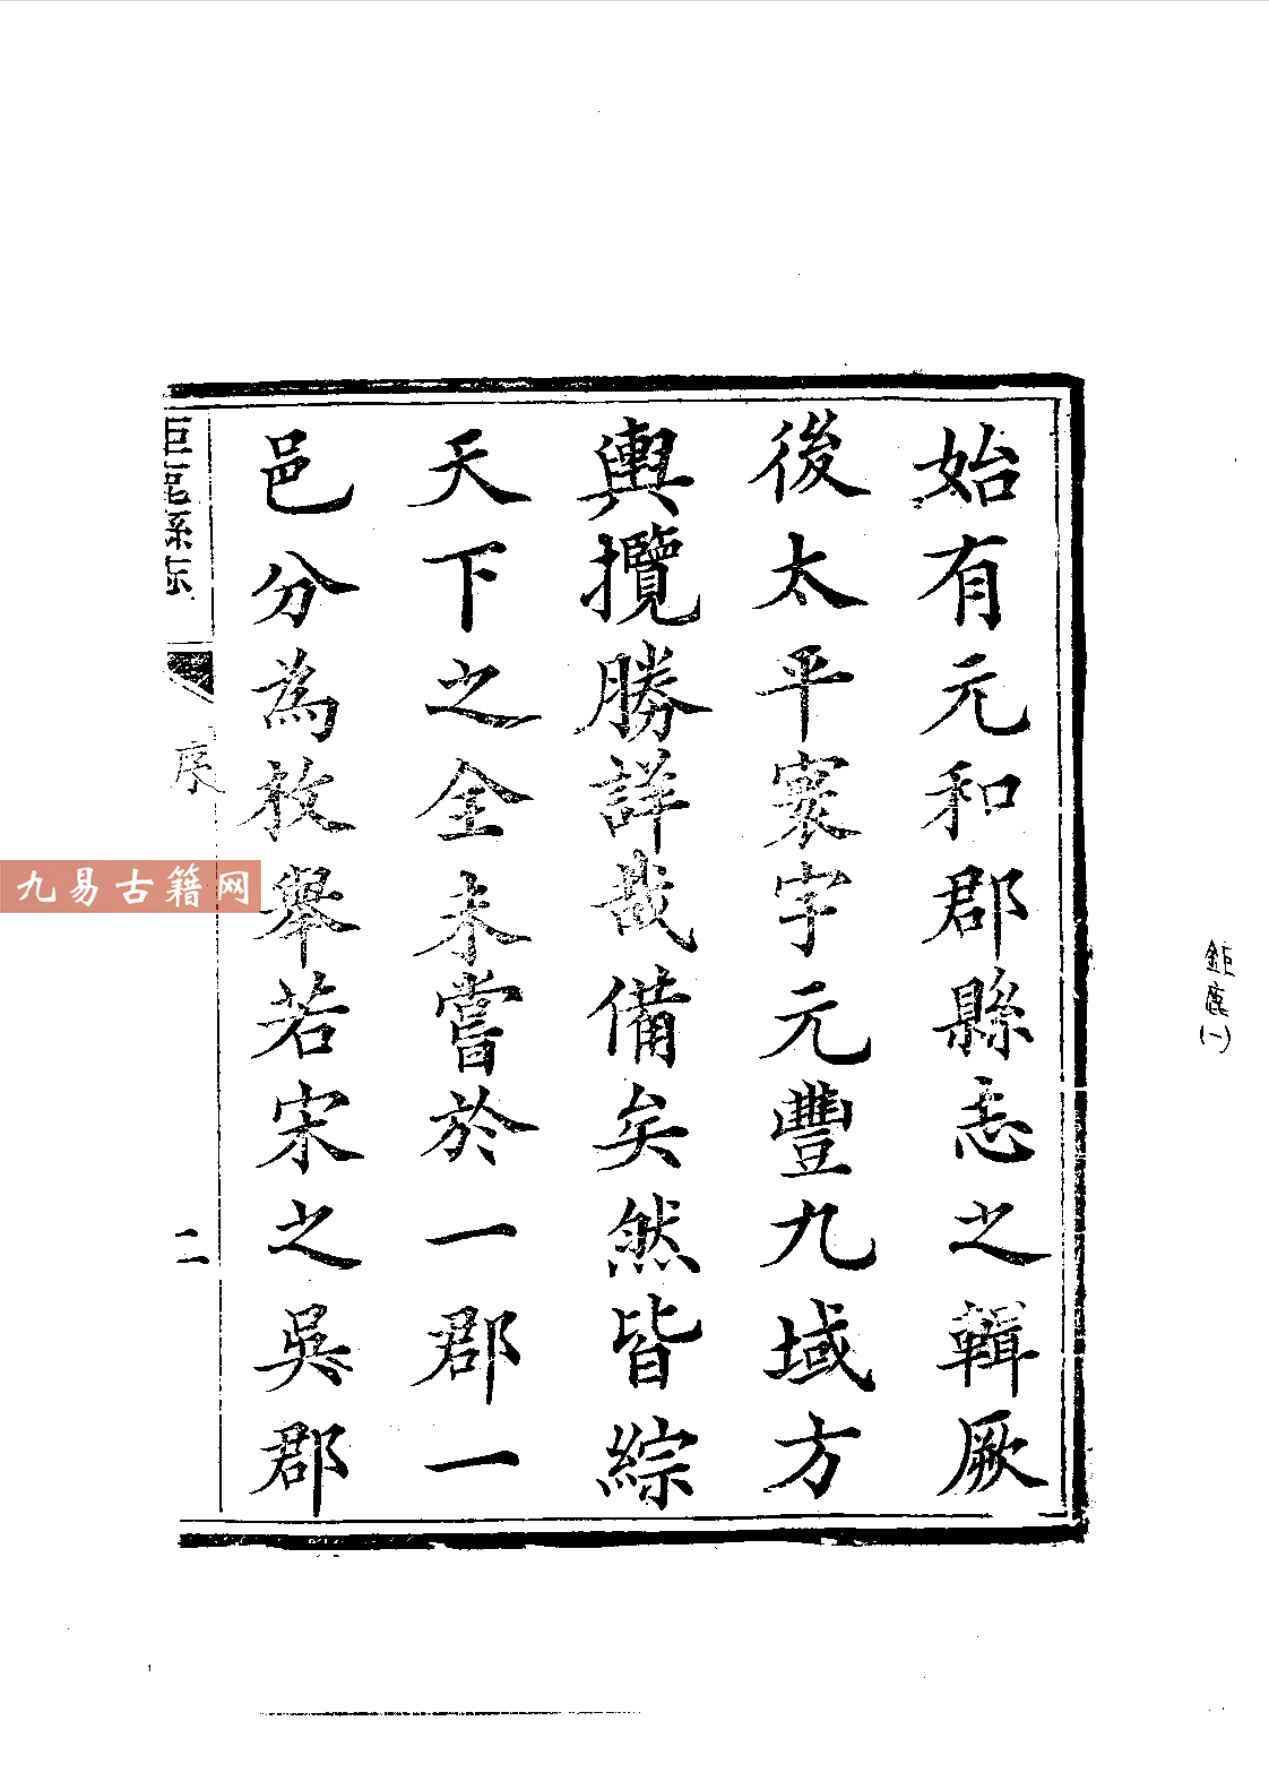 始有元和郡縣志之輯厥
後太平寰宇元豐九域方
輿攬勝詳哉備矣然皆綜
天下之全未嘗於一郡一
邑分為枚舉若宋之吳郡
巨鹿縣志
序
二
九易古籍网
鉅鹿(一)